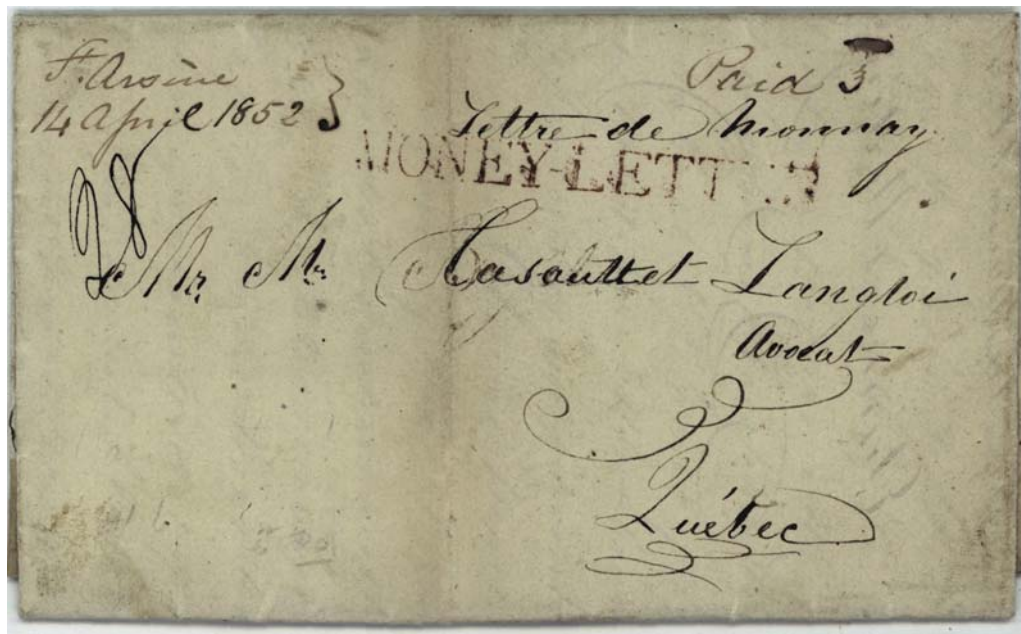 St. Arsène
14 April 1852
Paid 3
Lettre de Monnay
MONEY-LETTER
Mr. Mr. Casault et Langloi
Avocat
Québec